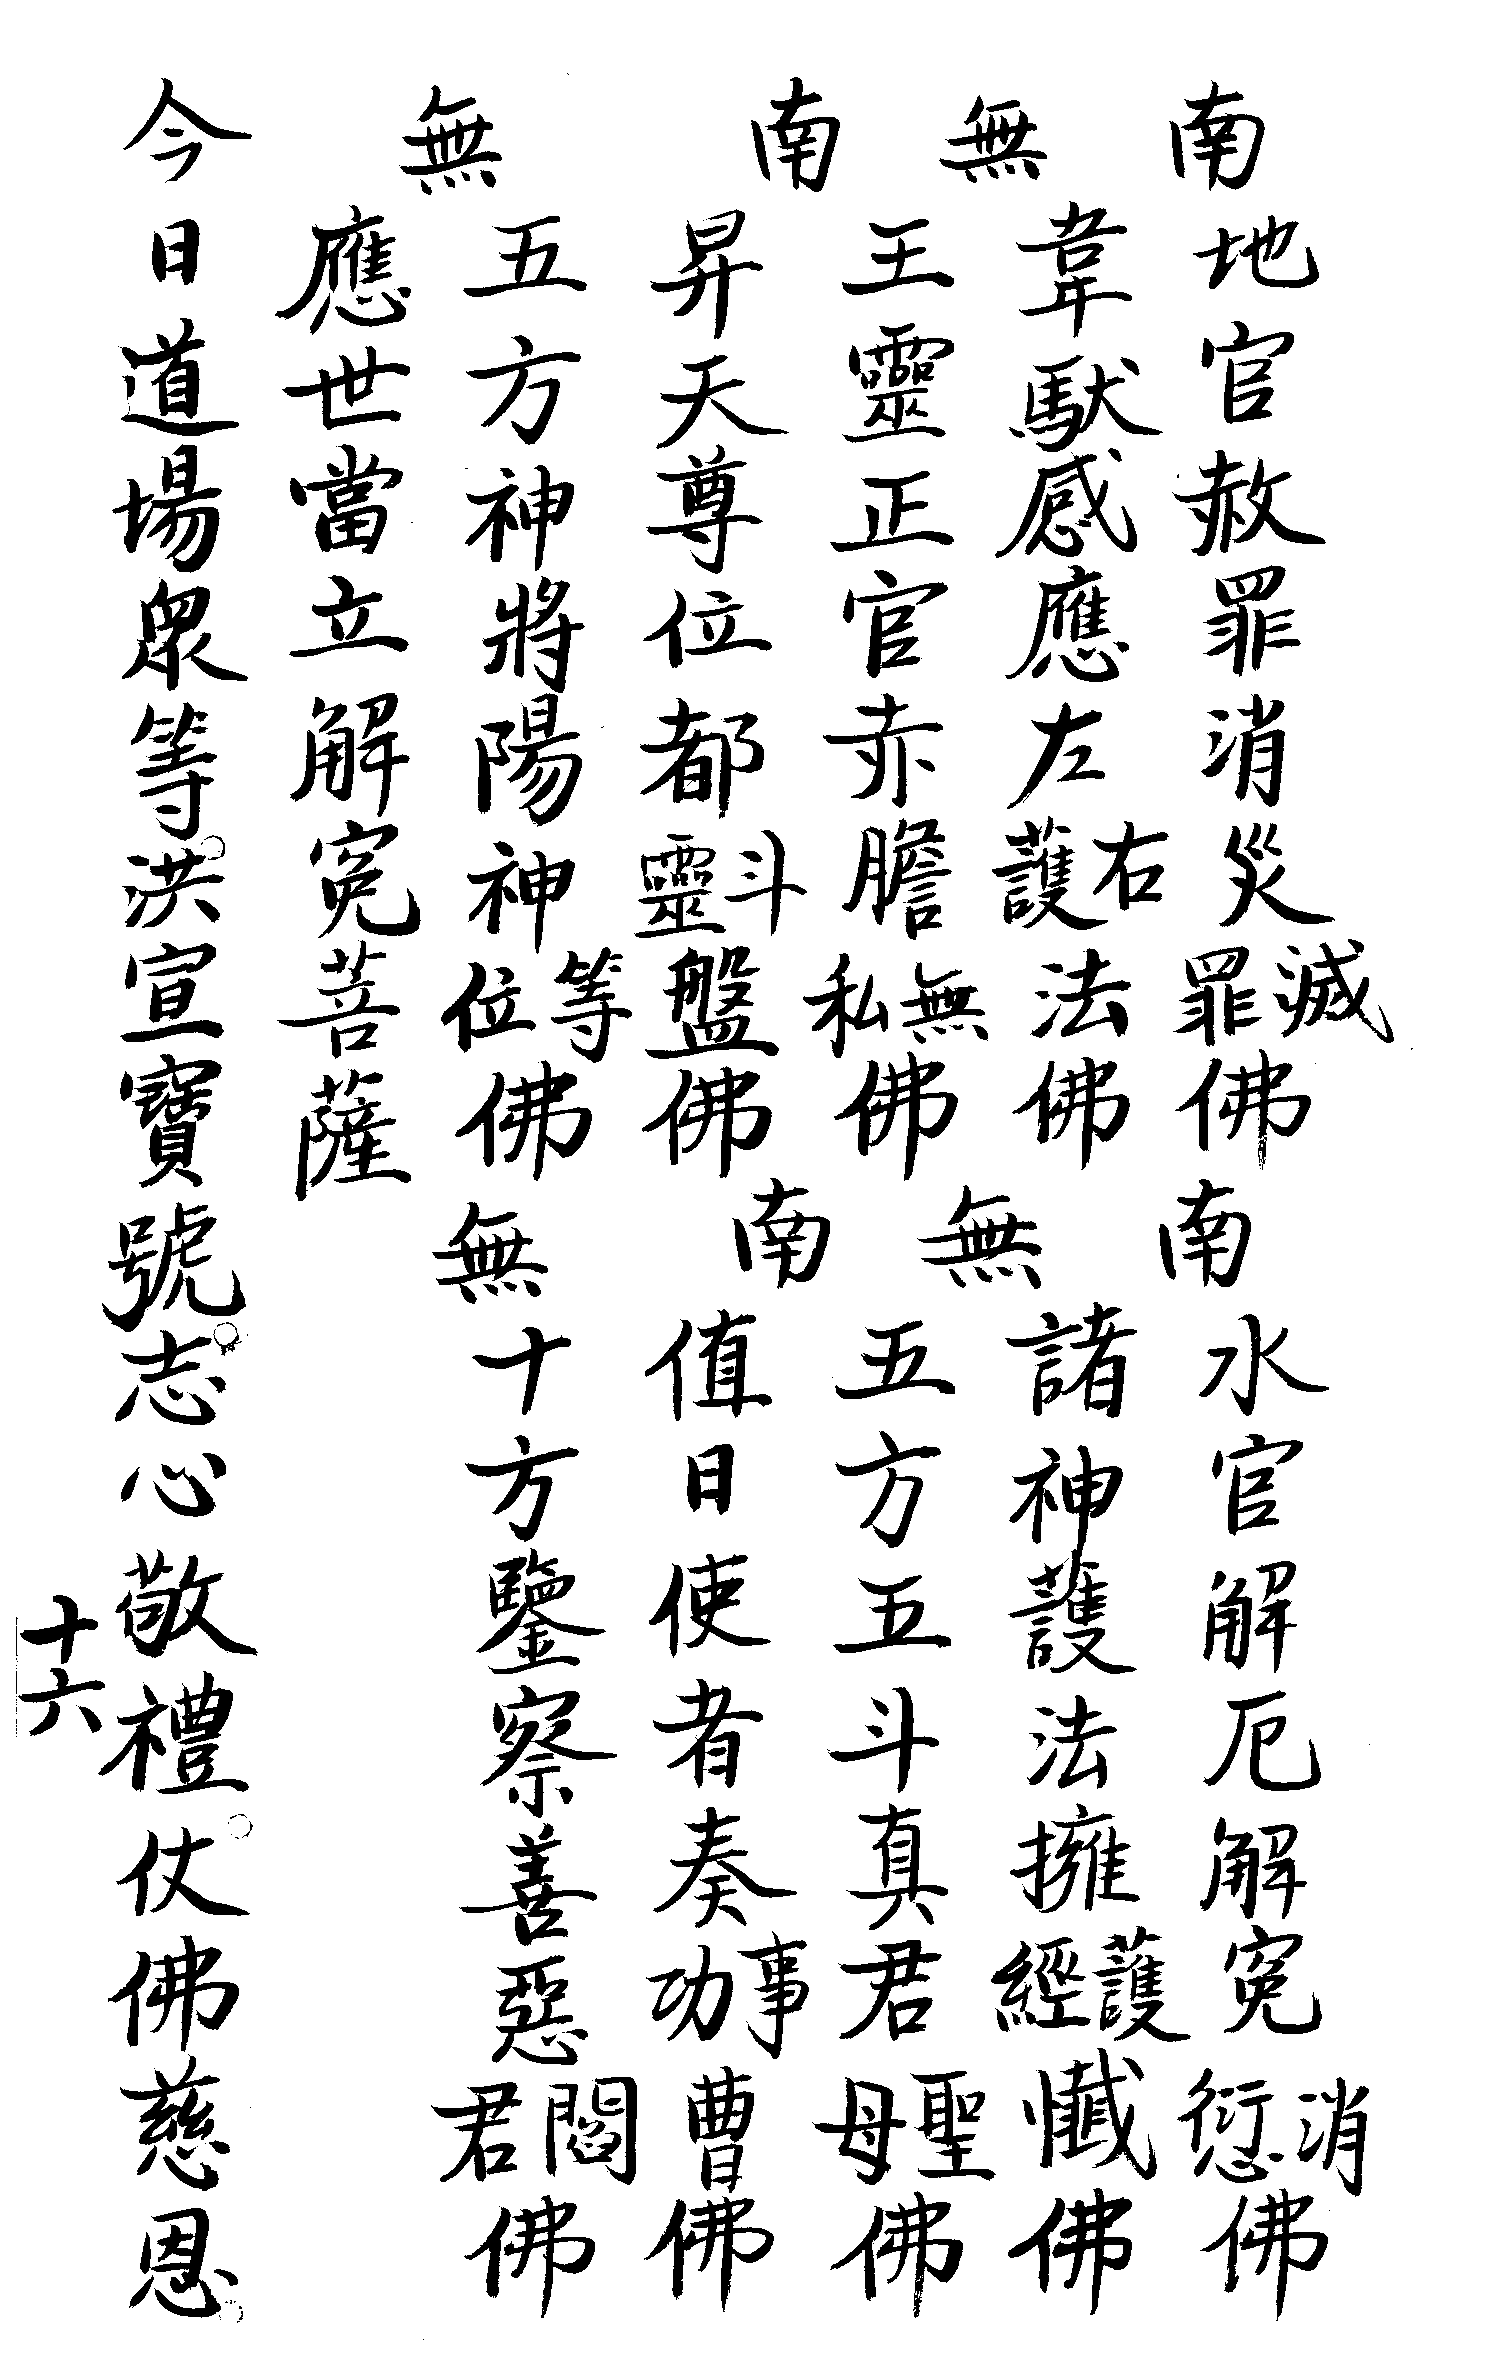 南 地官赦罪消災滅罪佛 南 水官解厄解冤消愆佛
無 韋馱感應左右護法佛 無 諸神護法擁護經懺佛
王靈正官赤膽無私佛 五方五斗真君聖母佛
南 昇天尊位都斗靈盤佛 南 值日使者奏事功曹佛
無 五方神將陽神等位佛 無 十方鑒察善惡閻君佛
應世當立解冤菩薩
今日道場眾等。洪宣寶號。志心敬禮。仗佛慈恩。
十六